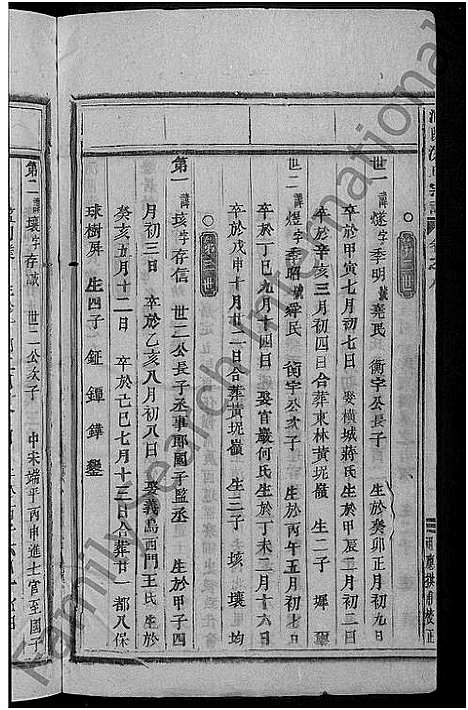 世一 諱燧字季明號堯民 衡宇公長子 生於癸卯正月初九日
卒於甲寅七月初七日 娶橫城蔣氏生於甲辰二月初二日
卒於辛亥三月初四日合葬東林黃坭嶺 生二子 墀
世二 諱煜字季昭號舜民 衡宇公次子 生於丙午五月初
卒於丁巳九月十四日 娶官巖何氏生於丁未二月十六日
卒於戊申十月廿二日合葬黃坭嶺 生三子 垓 壤 均
第三世
第一 諱垓字存信 世二公長子丞事郎國子監丞 生於甲子四
月初三日 卒於乙亥八月初八日 娶義烏西門王氏生於
癸亥五月十二日 卒於己巳七月十三日合葬廿一都八保
球樹屏 生四子 鉦 鐔 鏵 鏊
第二 諱壤字存誠 世二公次子 中宋端平丙申進士官至國子
Family Search International